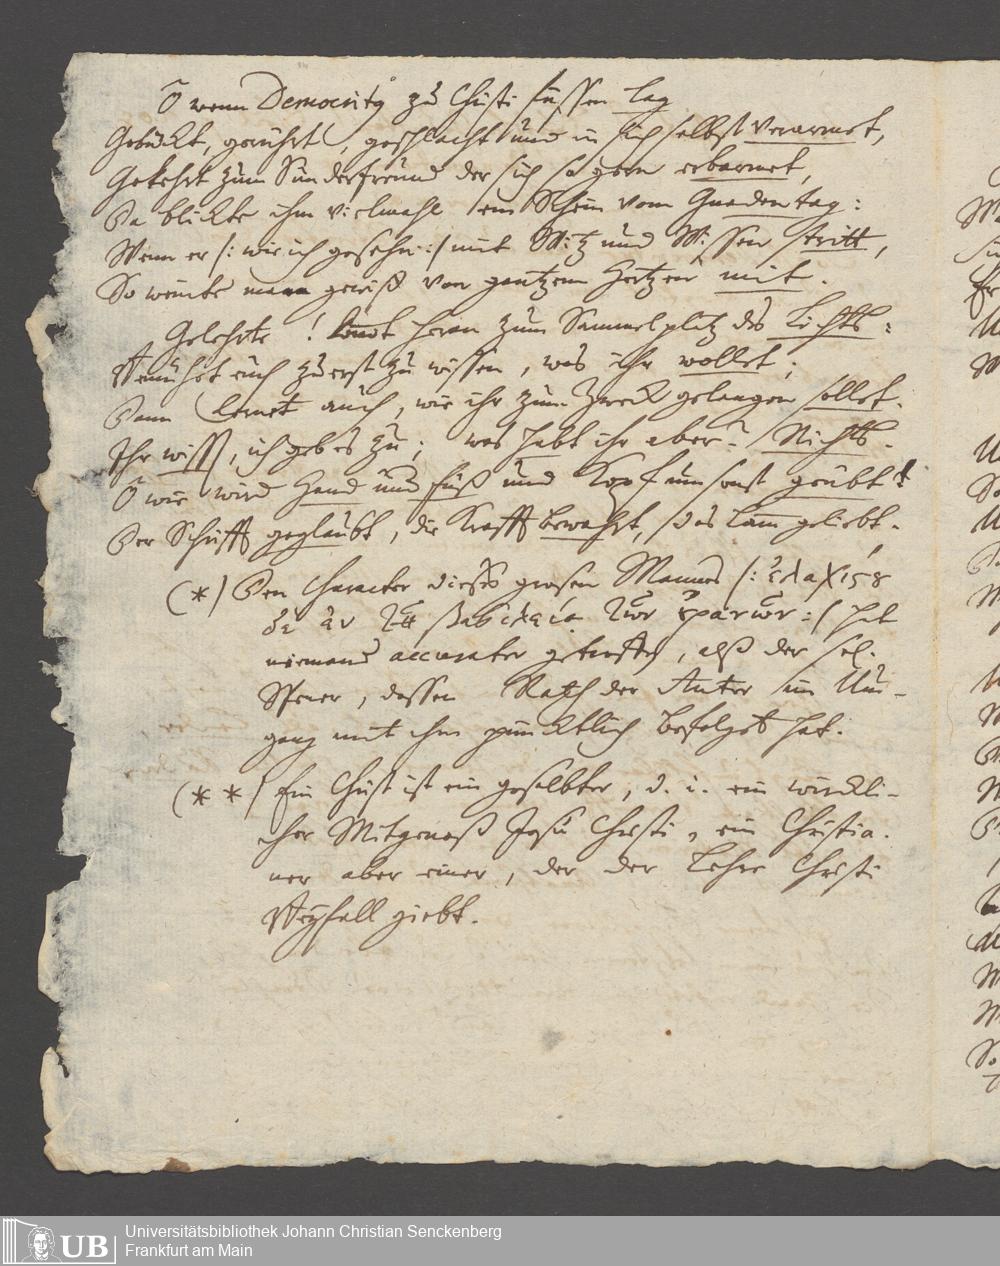 O wenn Democritq zu Christi füssen lag
Gebückt, gerührt, geschlacht und in sich selbst verarmet,
Gekehrt zum Sünderfreund der sich so gern erbarmet,
Da blickte ihm vielmahl ein Schein vom Gnadentag:
Wenn er /: wie ich gesehn :/ mit Witz und Wissen stritt,
So weinte mann gewiß von gantzem Hertzen mit.
Gelehrte! heran zum Sammelplatz des Lichts:
Bemüht euch zuerst zu wissen, was ihr wollet;
Dann lernet auch, wie ihr zum Zweck gelangen sollet.
Ihr wißt, ich geb es zu; was habt ihr aber? Nichts.
O wie wird Hand und Fuß und Kopf umsonst geübt!
Der Schrifft geglaubt, die Krafft bewahrt, das Lam geliebt.
(*) Den Character dieses grosen Mannes /: ἐλαχίςȣ
δὲ ἐν τῇ βασιλεία τῶν ȣρανῶν :/ hat
niemand accurater getroffen, alß der sel.
Spener, dessen Rath der Autor im Um-
gang mit ihm pünctlich befolget hat.
(**) Ein Christ ist ein gesalbter, d. i. ein würckli-
cher Mitgenoß Jesu Christi, ein Christia-
ner aber einer, der der Lehre Christi
Beyfall giebt.
UB
Universitätsbibliothek Johann Christian Senckenberg
Frankfurt am Main